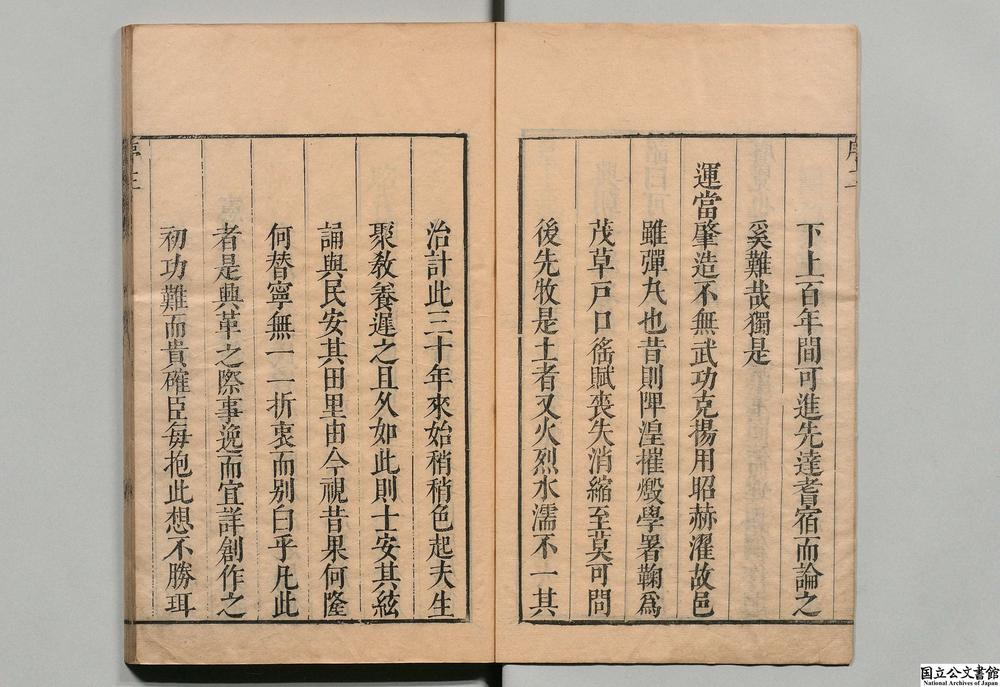 下上百年間可進先達耆宿而論之
奚難哉獨是
運當肇造不無武功克揚用昭赫濯故邑
雖彈丸也昔則陴湟摧燬學署鞠爲
茂草戸口徭賦喪失消縮至莫可問
後先牧是土者又火烈水濡不一其
治計此三十年來始稍稍色起夫生
聚教養遲之且久如此則士安其絃
誦與民安其田里由今視昔果何隆
何替寧無一一折衷而别白乎凡此
者是興革之際事逸而宜詳創作之
初功難而貴確臣毎抱此想不勝珥
国立公文書館
National Archives of Japan